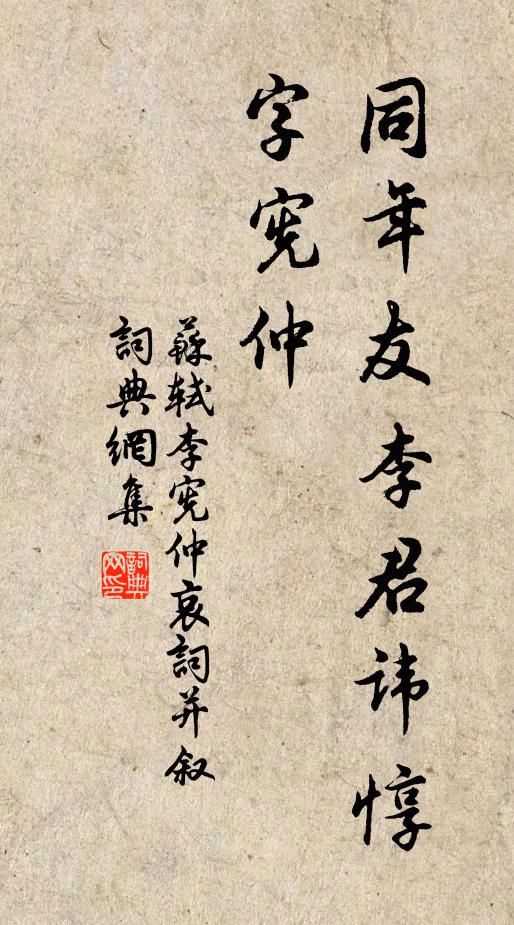 同年友李君諱惇
字宪仲
蘇軾李宪仲哀詞并叙
詞典網集
詞典网印